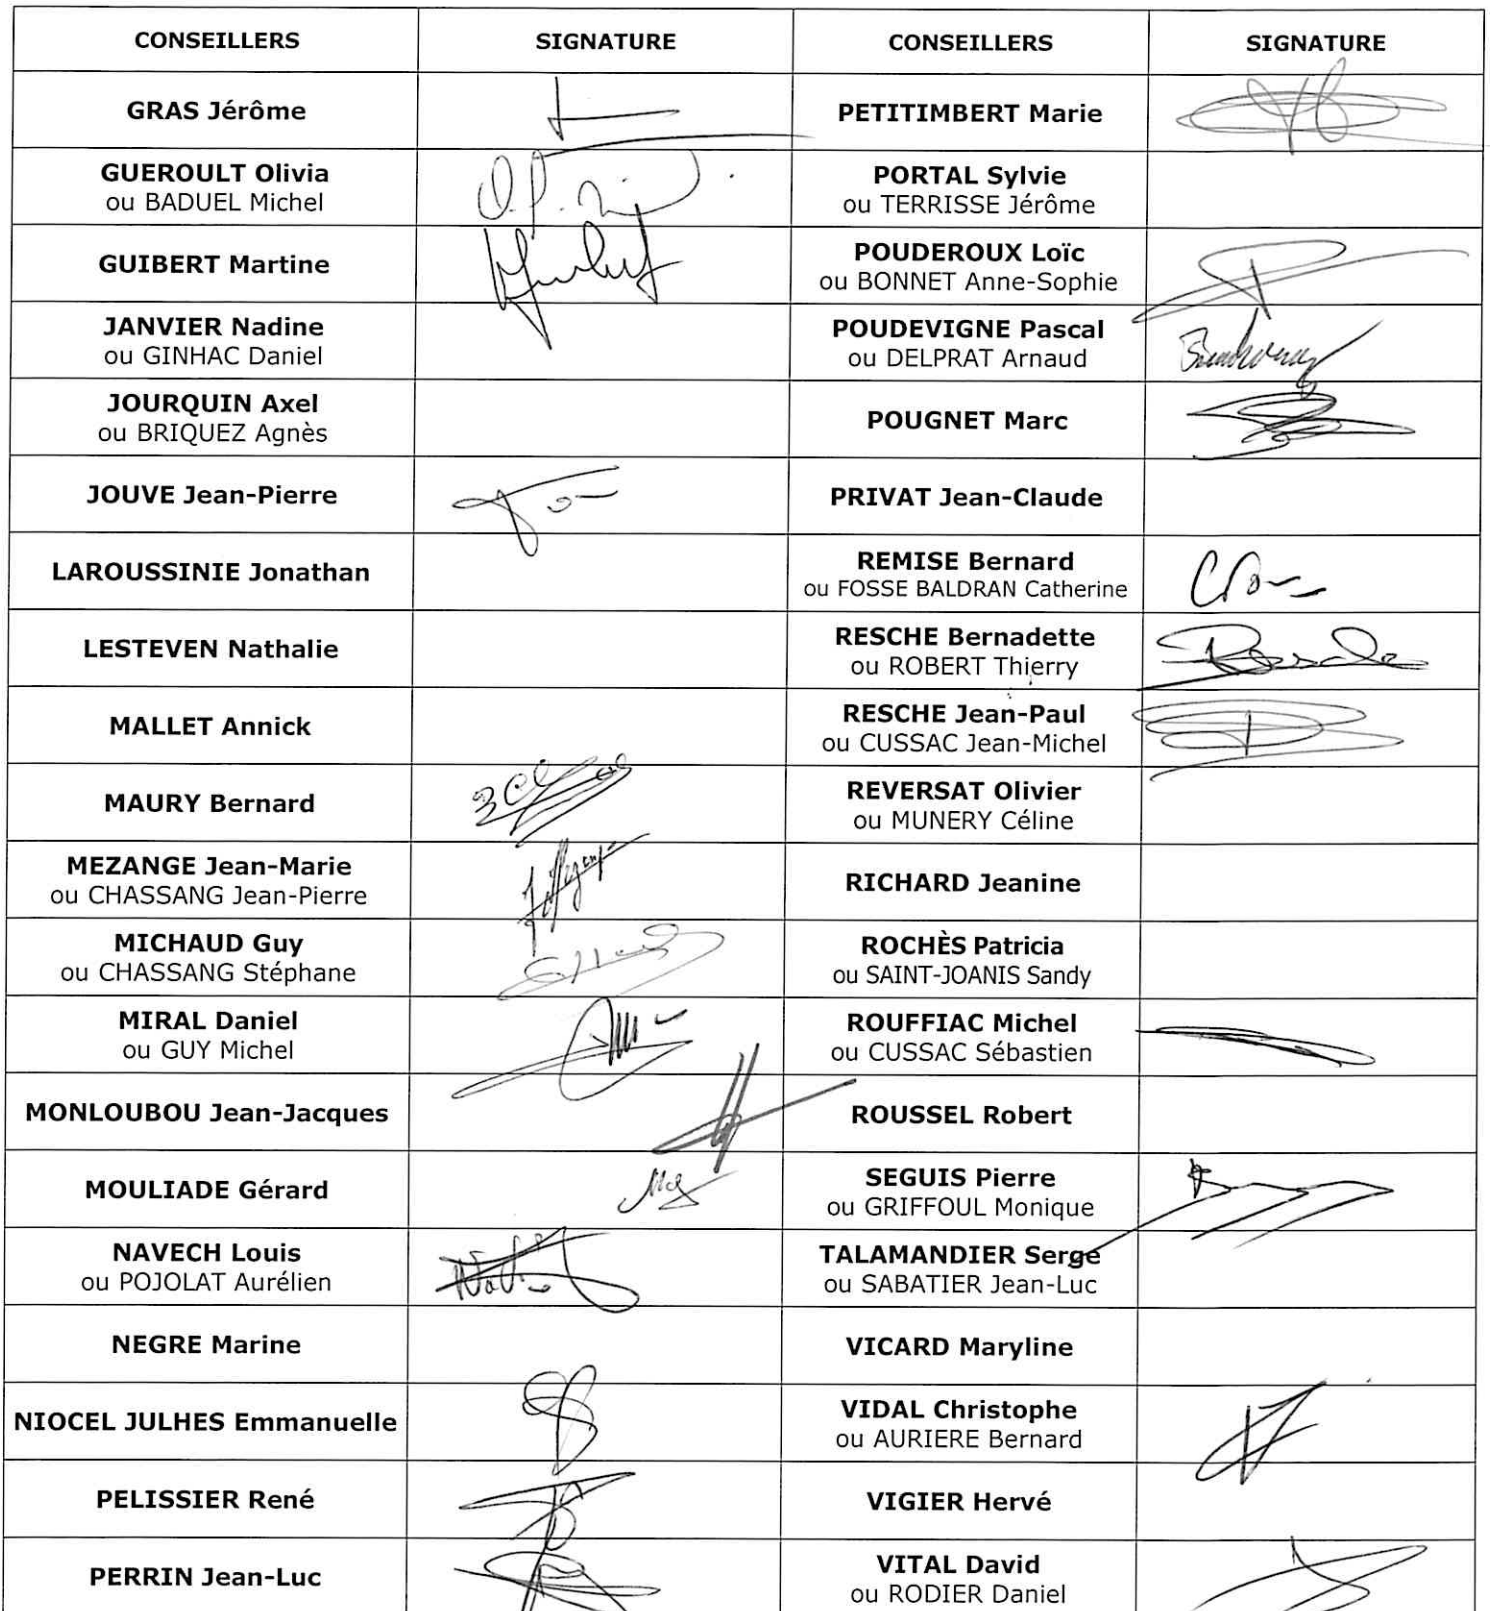 CONSEILLERS SIGNATURE CONSEILLERS SIGNATURE
GRAS Jérôme PETITIMBERT Marie
GUEROULT Olivia PORTAL Sylvie
ou BADUEL Michel ou TERRISSE Jérôme
GUIBERT Martine POUDEROUX Loïc
ou BONNET Anne-Sophie
JANVIER Nadine POUDEVIGNE Pascal
ou GINHAC Daniel ou DELPRAT Arnaud
JOURQUIN Axel POUGNET Marc
ou BRIQUEZ Agnès
JOUVE Jean-Pierre PRIVAT Jean-Claude
LAROUSSINIE Jonathan REMISE Bernard
ou FOSSE BALDRAN Catherine
LESTEVEN Nathalie RESCHE Bernadette
ou ROBERT Thierry
MALLET Annick RESCHE Jean-Paul
ou CUSSAC Jean-Michel
MAURY Bernard REVERSAT Olivier
ou MUNERY Céline
MEZANGE Jean-Marie RICHARD Jeanine
ou CHASSANG Jean-Pierre
MICHAUD Guy ROCHÈS Patricia
ou CHASSANG Stéphane ou SAINT-JOANIS Sandy
MIRAL Daniel ROUFFIAC Michel
ou GUY Michel ou CUSSAC Sébastien
MONLOUBOU Jean-Jacques ROUSSEL Robert
MOULIADE Gérard SEGUIS Pierre
ou GRIFFOUL Monique
NAVECH Louis TALAMANDIER Serge
ou POJOLAT Aurélien ou SABATIER Jean-Luc
NEGRE Marine VICARD Maryline
NIOCEL JULHES Emmanuelle VIDAL Christophe
ou AURIERE Bernard
PELISSIER René VIGIER Hervé
PERRIN Jean-Luc VITAL David
ou RODIER Daniel